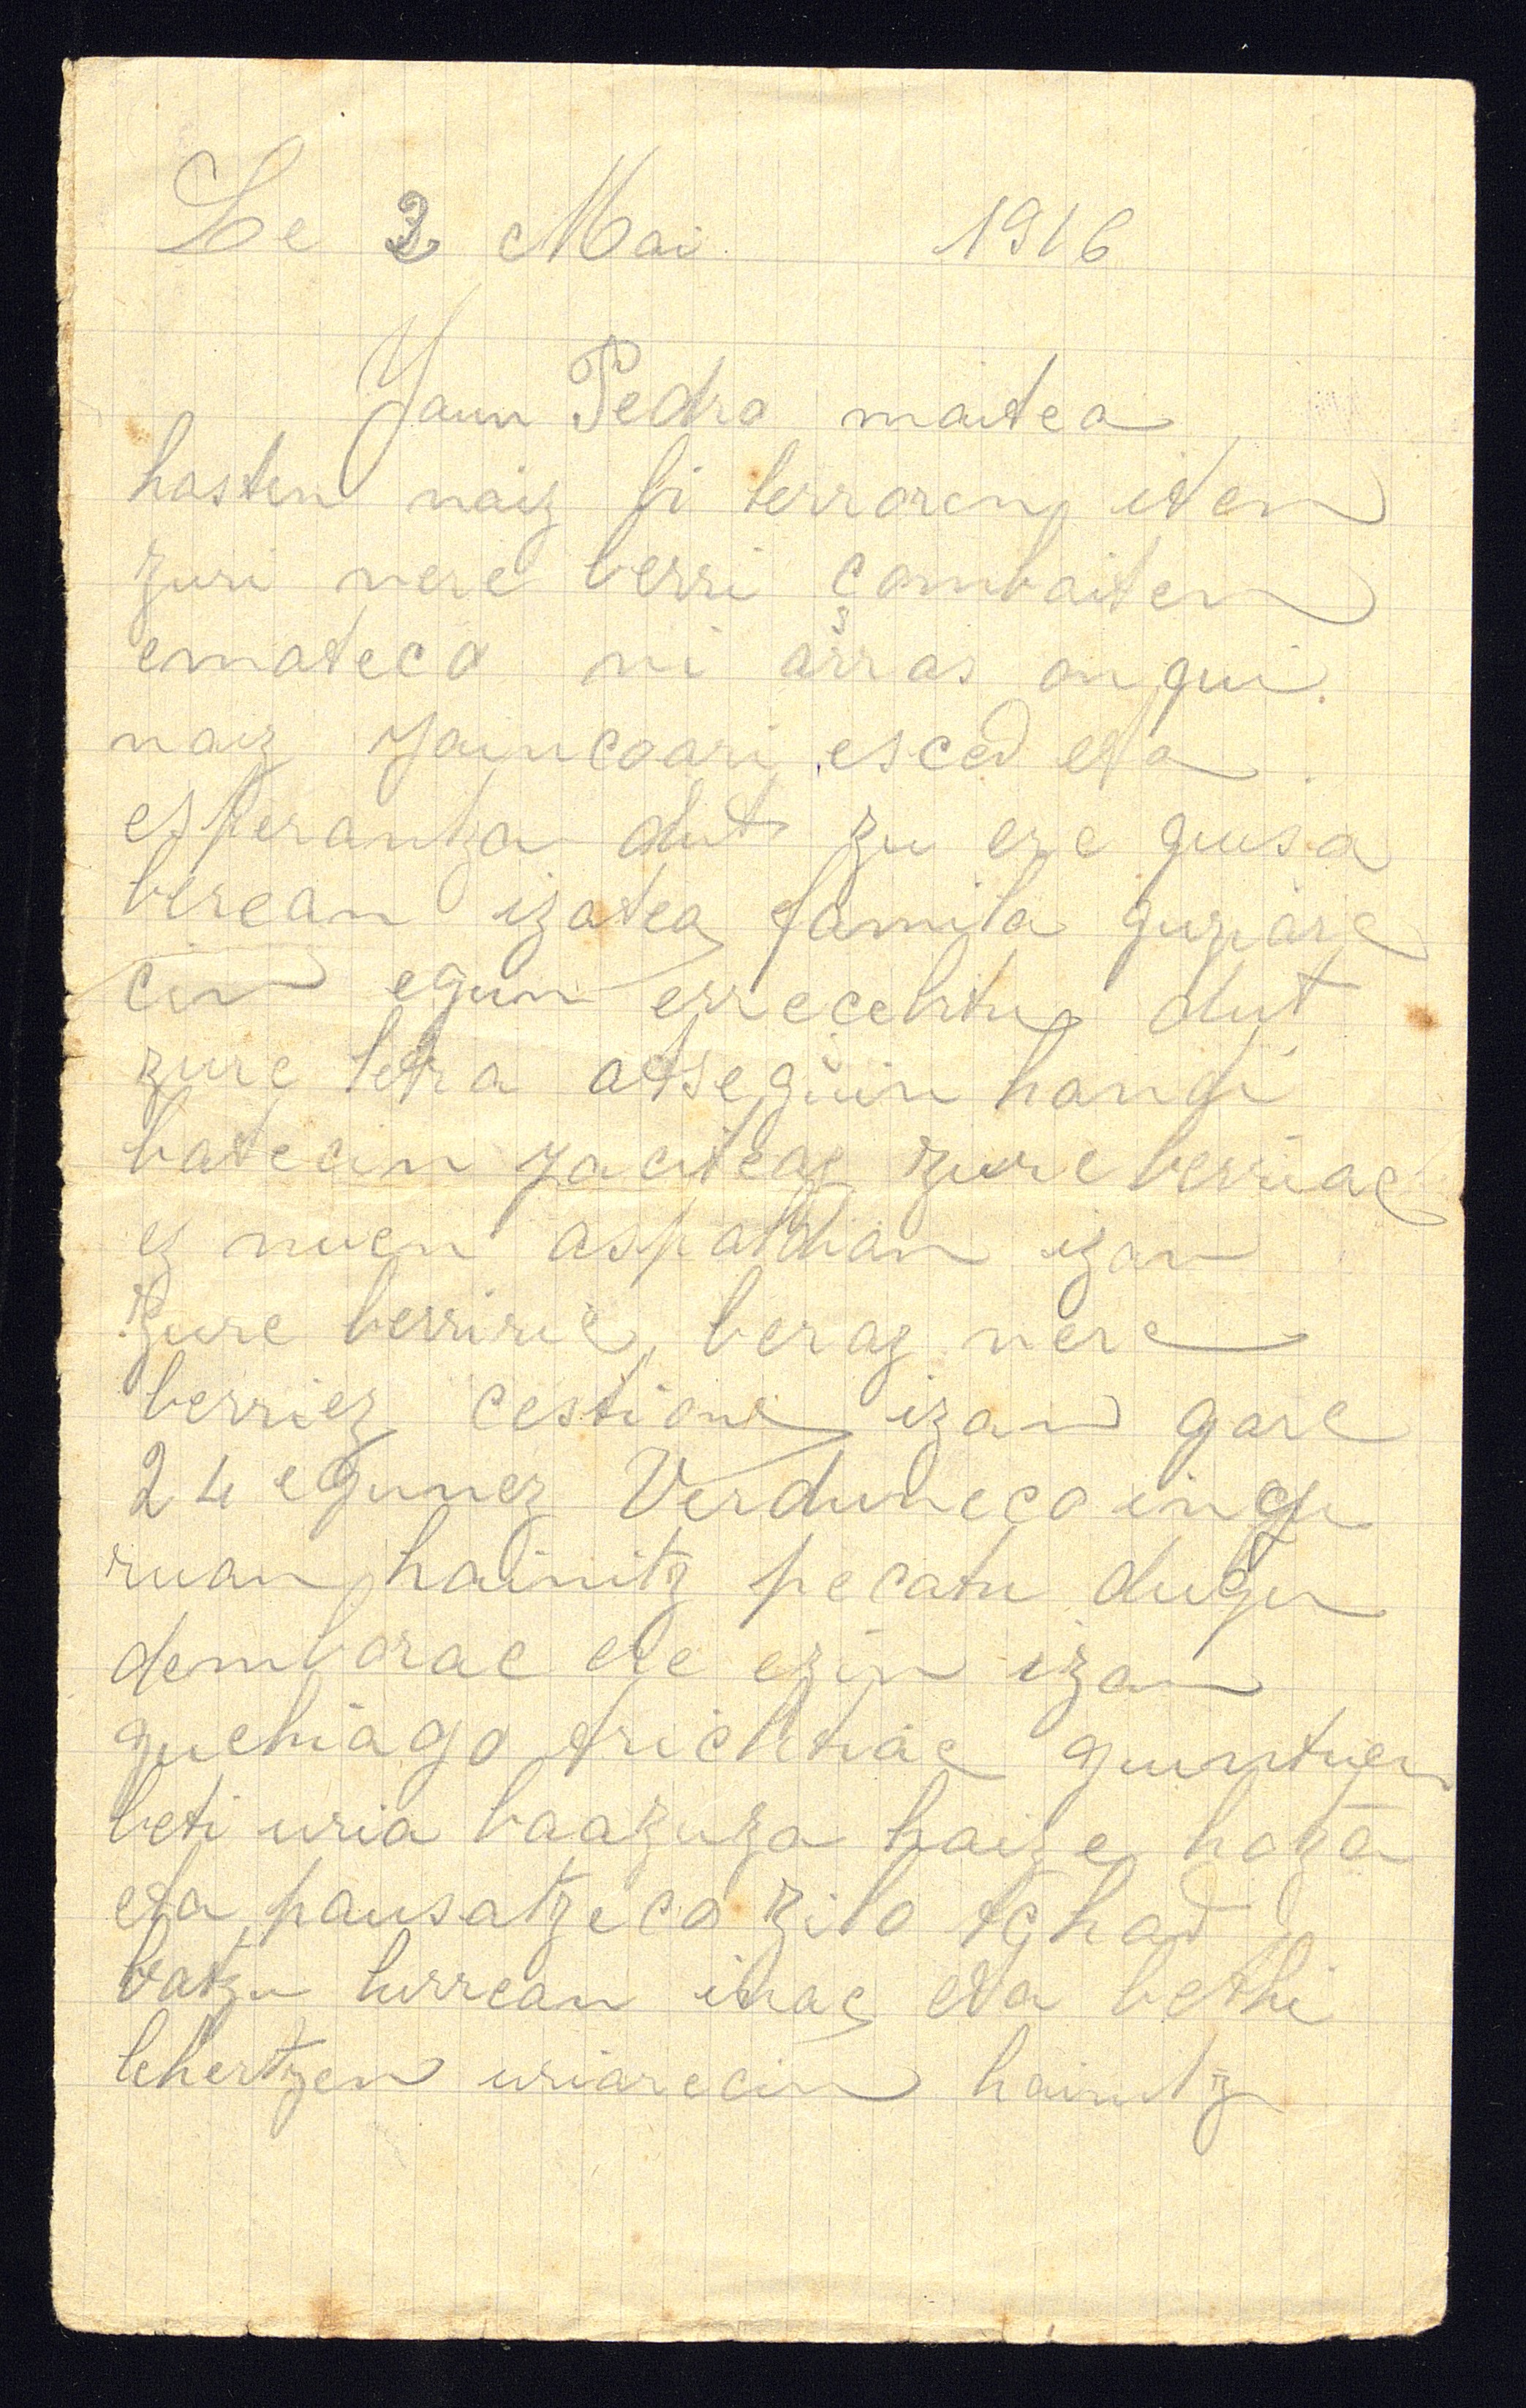 Le 2 Mai 1916
Jaun Pedro maitea
hasten naiz bi lerroren iten
zuri nere berri çombaiten
emateco ni arras ongui
naiz Jaincoari esced eta
esperantza dut zu ere guisa
berean izatea familia guziare
cin egun errecebitu dut
zure letra atseguin handi
batecin jaciteaz zure berriac
ez nuen aspaldian izan
zure berriric, beraz nere
berriez cestione izan gare
24 egunez Verduneco ingu
ruan hainitz pecatu dugu
demborac ere ezin izan
guehiago trichtiac guintuen
beti uria baazuza haize hoza
eta pausatzeco zilo tchar
batzu lurrean inac eta bethi
lehertzen uriarecin hainitz